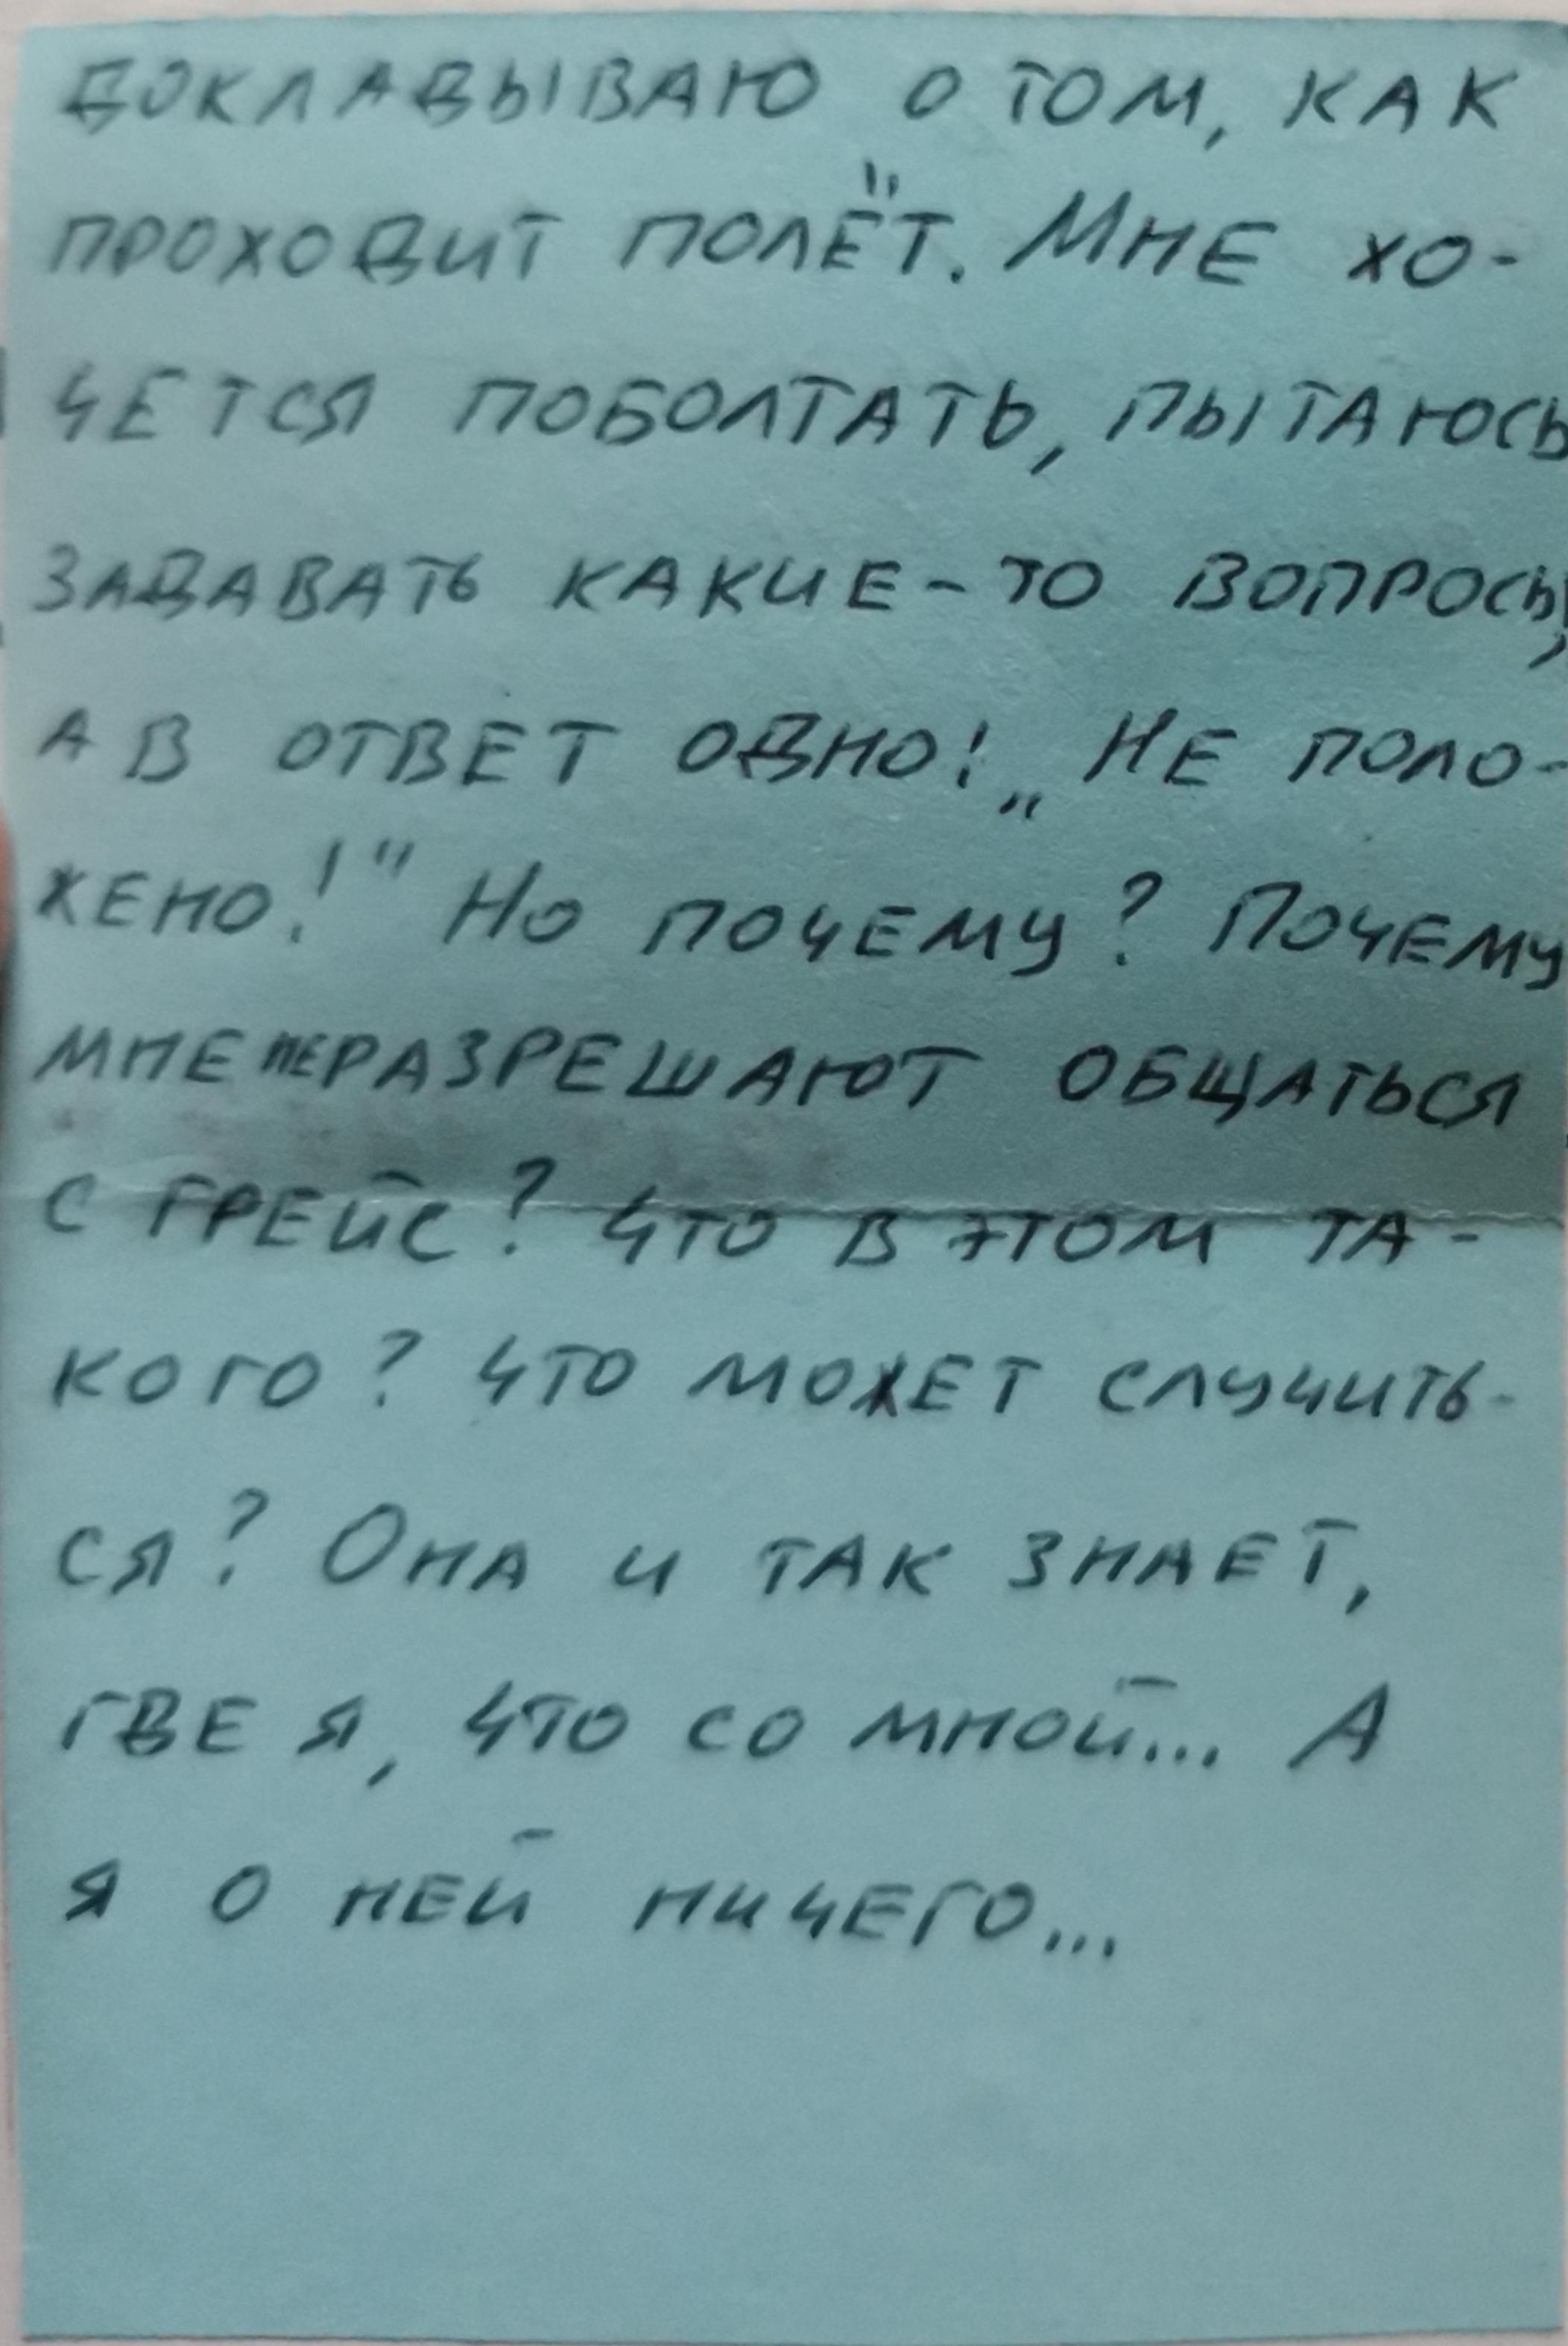 докладываю о том, как
проходит полёт. Мне хо-
чется поболтать, пытаюсь
задавать какие-то вопросы,
а в ответ одно! „Не поло-
жено!" Но почему? Почему
мне не разрешают общаться
с Грейс? Что в этом та-
кого? Что может случить-
ся? Она и так знает,
где я, что со мной... А
я о ней ничего...